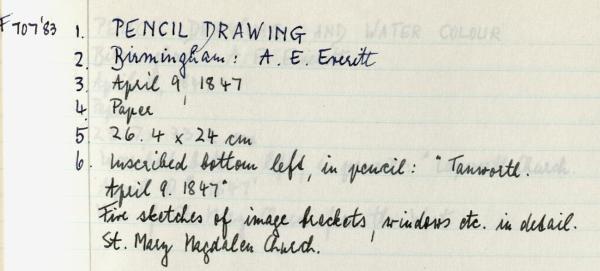 F707'83 1. PENCIL DRAWING
2. Birmingham: A. E. Everitt
3. April 9 1847
4. Paper
5. 26.4 x 24 cm
6. Inscribed bottom left, in pencil: "Tanworth.
April 9. 1847"
Five sketches of image brackets, windows etc. in detail.
St. Mary Magdalen Church.